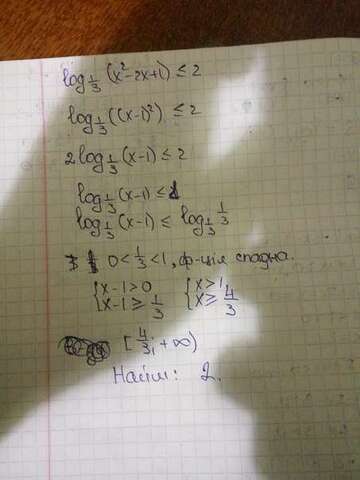 log_{1/3} (x² - 2x + 1) ≤ 2
log_{1/3} ((x-1)²) ≤ 2
2 log_{1/3} (x-1) ≤ 2
log_{1/3} (x-1) ≤ 1
log_{1/3} (x-1) ≤ log_{1/3} 1/3
0 < 1/3 < 1, ф-ція спадна.
{ x-1 > 0 { x > 1
{ x-1 ≥ 1/3 { x ≥ 4/3
[4/3, +∞)
Найм: 2.